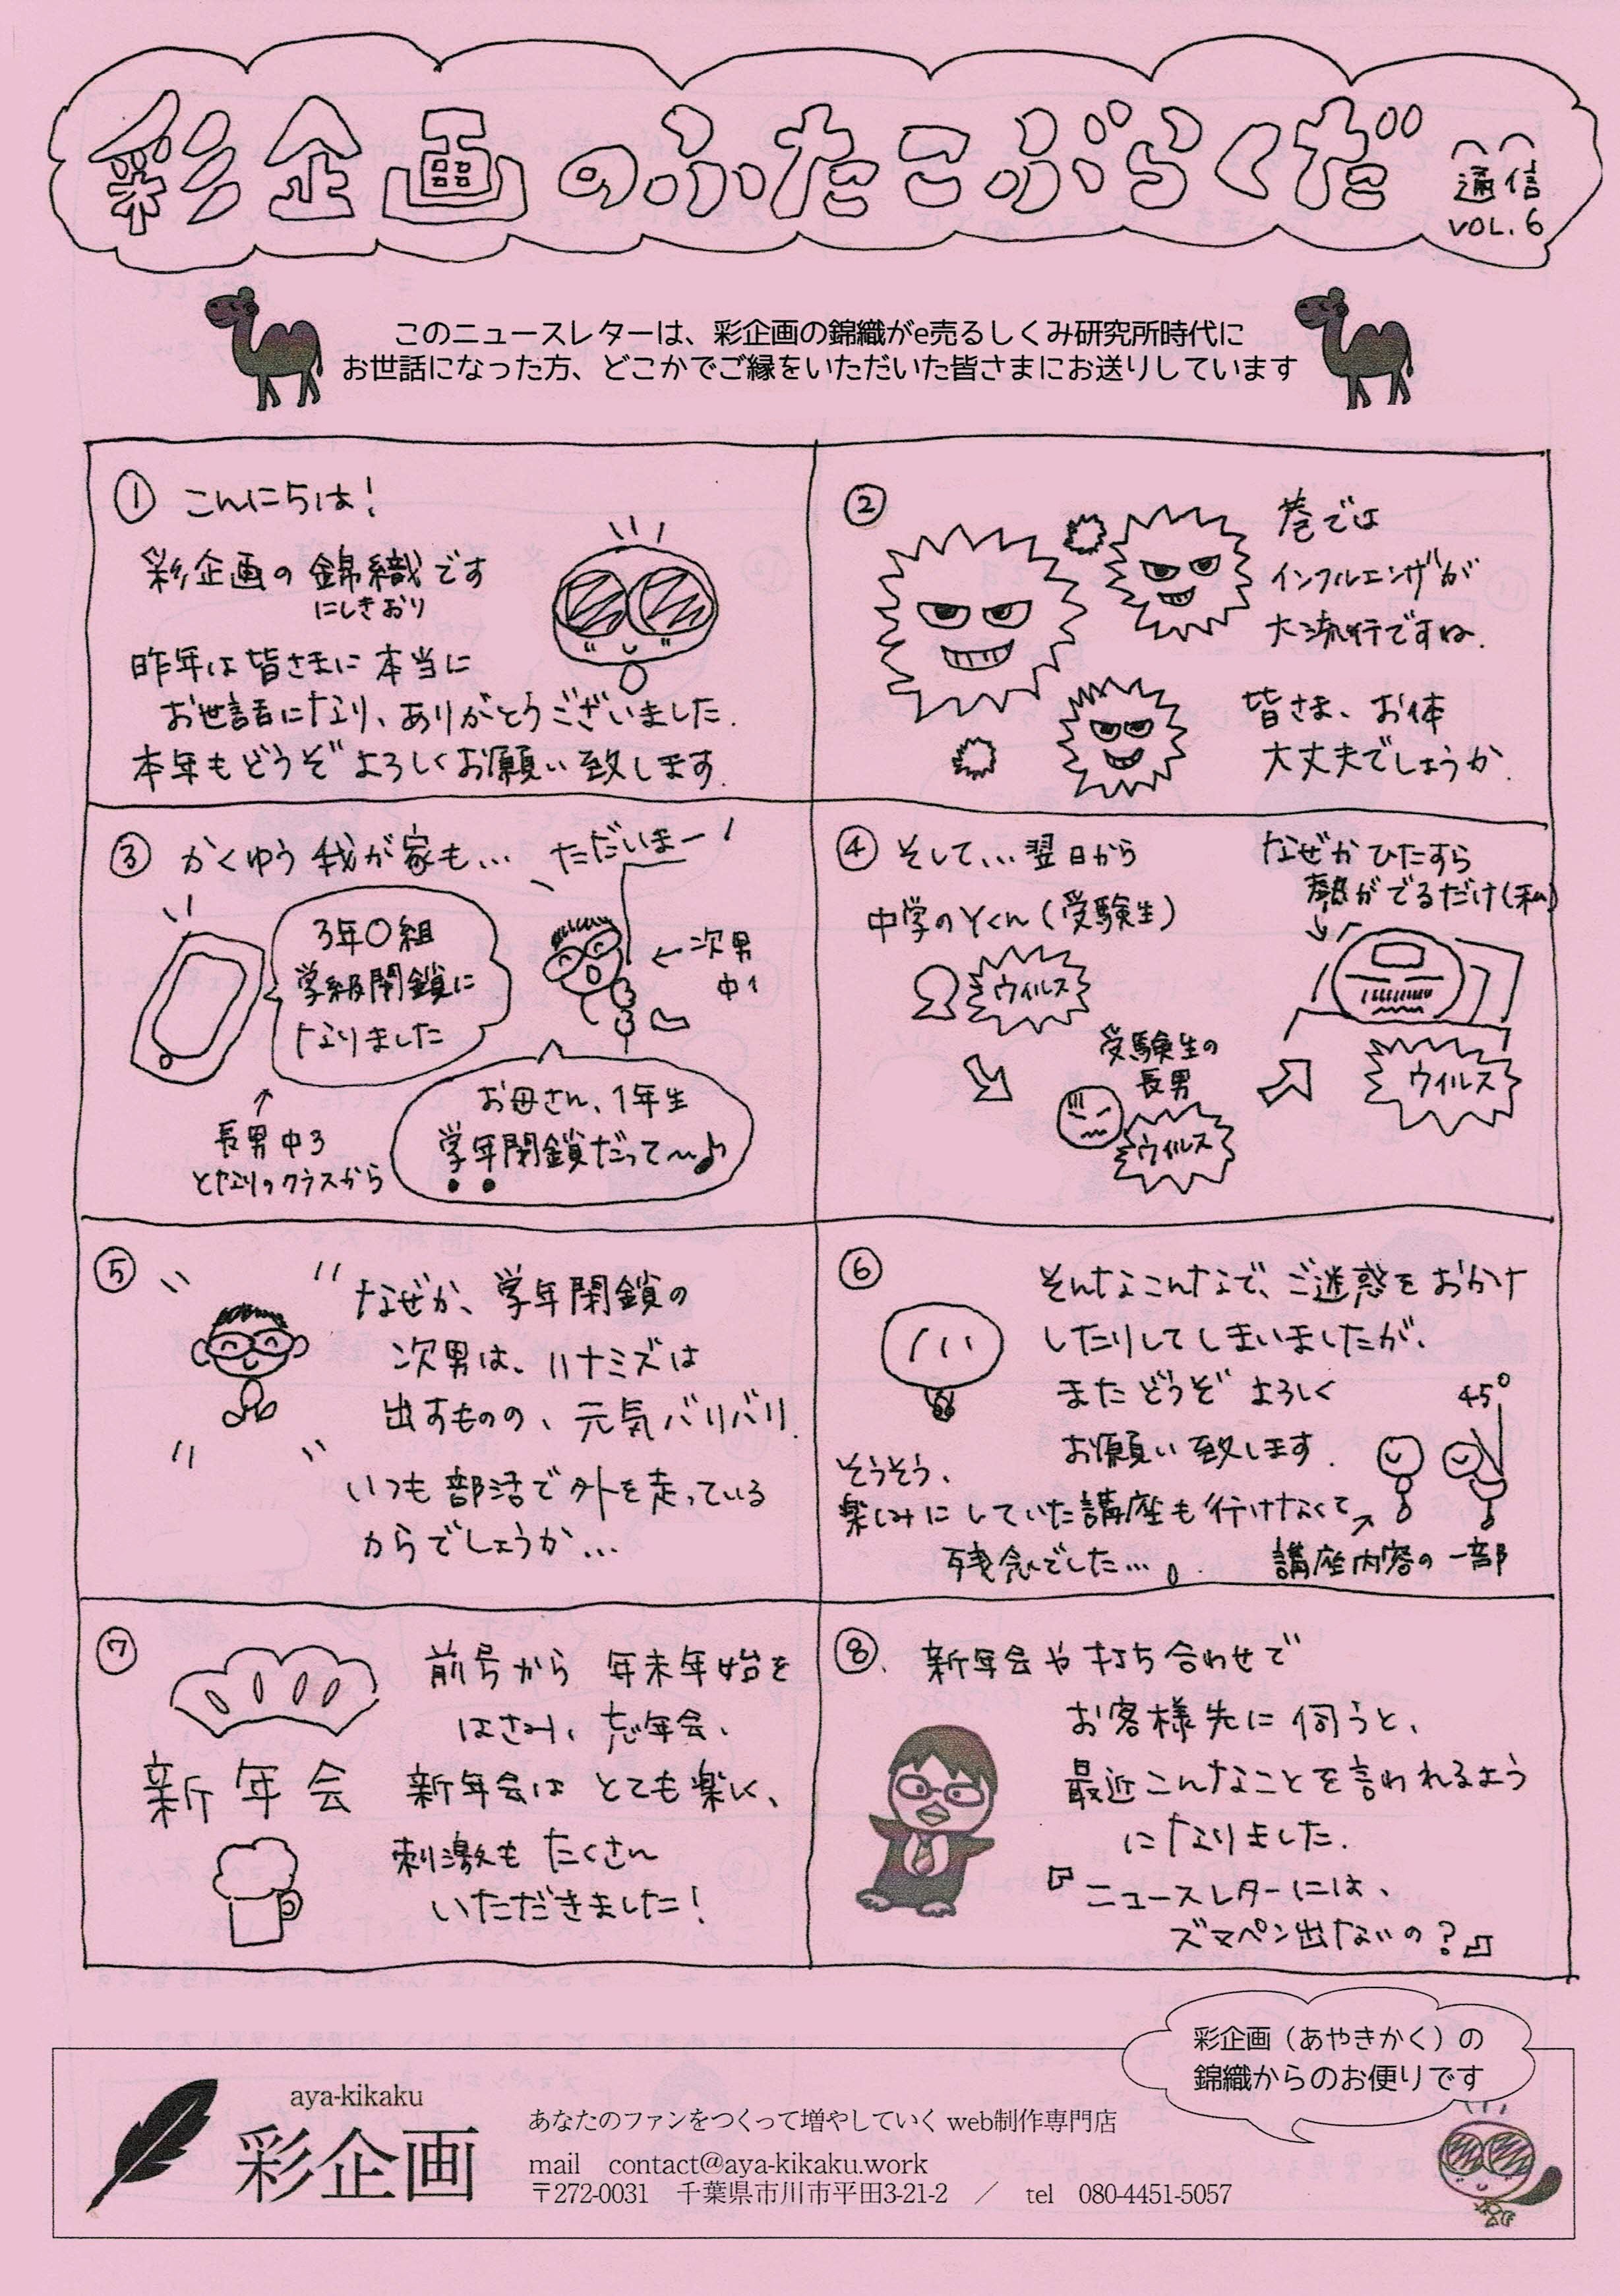 彩企画のふたこぶらくだ
通信
VOL.6
このニュースレターは、彩企画の錦織がe売るしくみ研究所時代に
お世話になった方、どこかでご縁をいただいた皆さまにお送りしています
① こんにちは!
彩企画の錦織です
にしきおり
昨年は皆さまに本当に
お世話になり、ありがとうございました.
本年もどうぞよろしくお願い致します.
②
巷では
インフルエンザが
大流行ですね.
皆さま、お体
大丈夫でしょうか.
③ かくゆう我が家も…
ただいまー!
3年〇組
学級閉鎖に
なりました
←次男
中1
↑
長男中3
となりのクラスから
お母さん、1年生
学年閉鎖だって〜♪
④ そして…翌日から
中学のYくん(受験生)
ウイルス
受験生の
長男
ウイルス
なぜかひたすら
熱がでるだけ(私)
ウイルス
⑤
なぜか、学年閉鎖の
次男は、ハナミズは
出すものの、元気バリバリ.
いつも部活で外を走っている
からでしょうか…
⑥
そんなこんなで、ご迷惑をおかけ
したりしてしまいましたが、
またどうぞよろしく
お願い致します.
45°
そうそう、
楽しみにしていた講座も行けなくて
残念でした….
講座内容の一部
⑦
前号から年末年始を
はさみ、忘年会、
新年会はとても楽しく、
刺激もたくさん
いただきました!
新年会
⑧. 新年会や打ち合わせで
お客様先に伺うと、
最近こんなことを言われるよう
になりました.
『ニュースレターには、
ズマペン出ないの?』
彩企画（あやきかく）の
錦織からのお便りです
aya-kikaku
彩企画
あなたのファンをつくって増やしていく web制作専門店
mail contact@aya-kikaku.work
〒272-0031 千葉県市川市平田3-21-2 ／ tel 080-4451-5057